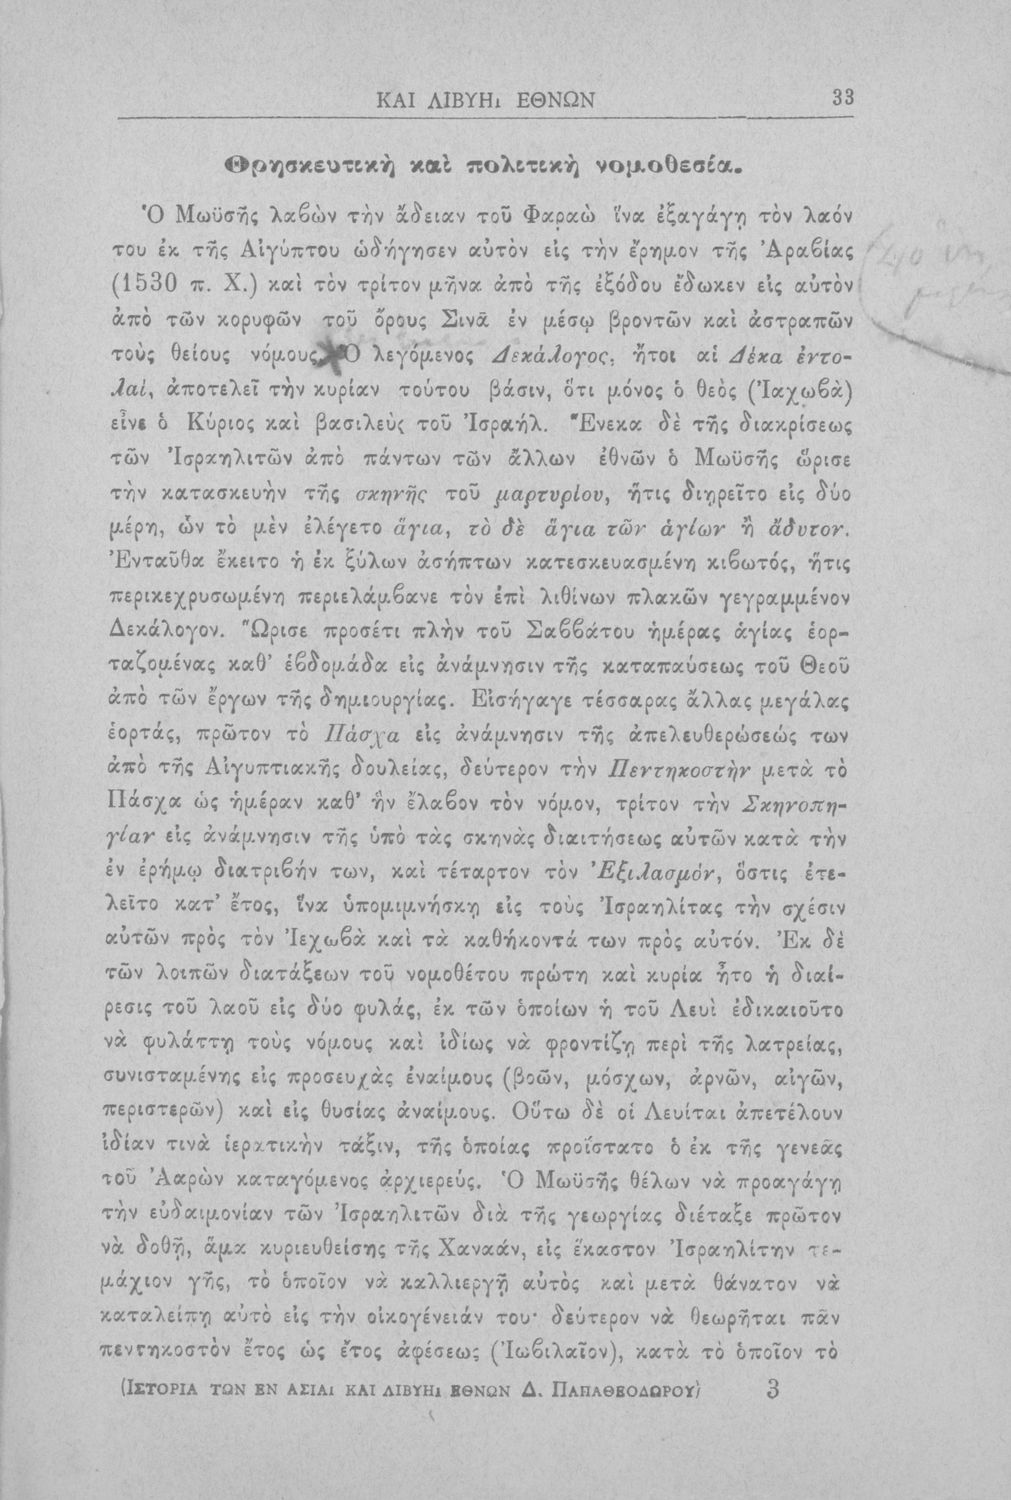 ΚΑΙ ΛΙΒΥΗι ΕΘΝΩΝ 33
Θρησκευτικὴ καὶ πολιτικὴ νομοθεσία.
Ὁ Μωϋσῆς λαβὼν τὴν ἄδειαν τοῦ Φαραὼ ἵνα ἐξαγάγῃ τὸν λαόν
του ἐκ τῆς Αἰγύπτου ὡδήγησεν αὐτὸν εἰς τὴν ἔρημον τῆς Ἀραβίας
(1530 π. Χ.) καὶ τὸν τρίτον μῆνα ἀπὸ τῆς ἐξόδου ἔδωκεν εἰς αὐτὸν
ἀπὸ τῶν κορυφῶν τοῦ ὄρους Σινᾶ ἐν μέσῳ βροντῶν καὶ ἀστραπῶν
τοὺς θείους νόμους. Ὁ λεγόμενος Δεκάλογος, ἤτοι αἱ Δέκα ἐντο-
λαί, ἀποτελεῖ τὴν κυρίαν τούτου βάσιν, ὅτι μόνος ὁ θεὸς (Ἰαχωβὰ)
εἶνε ὁ Κύριος καὶ βασιλεὺς τοῦ Ἰσραήλ. Ἕνεκα δὲ τῆς διακρίσεως
τῶν Ἰσραηλιτῶν ἀπὸ πάντων τῶν ἄλλων ἐθνῶν ὁ Μωϋσῆς ὥρισε
τὴν κατασκευὴν τῆς σκηνῆς τοῦ μαρτυρίου, ἥτις διῃρεῖτο εἰς δύο
μέρη, ὧν τὸ μὲν ἐλέγετο ἅγια, τὸ δὲ ἅγια τῶν ἁγίων ἢ ἄδυτον.
Ἐνταῦθα ἔκειτο ἡ ἐκ ξύλων ἀσήπτων κατεσκευασμένη κιβωτός, ἥτις
περικεχρυσωμένη περιελάμβανε τὸν ἐπὶ λιθίνων πλακῶν γεγραμμένον
Δεκάλογον. Ὥρισε προσέτι πλὴν τοῦ Σαββάτου ἡμέρας ἁγίας ἑορ-
ταζομένας καθ' ἑβδομάδα εἰς ἀνάμνησιν τῆς καταπαύσεως τοῦ Θεοῦ
ἀπὸ τῶν ἔργων τῆς δημιουργίας. Εἰσήγαγε τέσσαρας ἄλλας μεγάλας
ἑορτάς, πρῶτον τὸ Πάσχα εἰς ἀνάμνησιν τῆς ἀπελευθερώσεώς των
ἀπὸ τῆς Αἰγυπτιακῆς δουλείας, δεύτερον τὴν Πεντηκοστὴν μετὰ τὸ
Πάσχα ὡς ἡμέραν καθ' ἣν ἔλαβον τὸν νόμον, τρίτον τὴν Σκηνοπη-
γίαν εἰς ἀνάμνησιν τῆς ὑπὸ τὰς σκηνὰς διαιτήσεως αὐτῶν κατὰ τὴν
ἐν ἐρήμῳ διατριβήν των, καὶ τέταρτον τὸν Ἐξιλασμόν, ὅστις ἐτε-
λεῖτο κατ' ἔτος, ἵνα ὑπομιμνήσκῃ εἰς τοὺς Ἰσραηλίτας τὴν σχέσιν
αὐτῶν πρὸς τὸν Ἰεχωβὰ καὶ τὰ καθήκοντά των πρὸς αὐτόν. Ἐκ δὲ
τῶν λοιπῶν διατάξεων τοῦ νομοθέτου πρώτη καὶ κυρία ἦτο ἡ διαί-
ρεσις τοῦ λαοῦ εἰς δύο φυλάς, ἐκ τῶν ὁποίων ἡ τοῦ Λευῒ ἐδικαιοῦτο
νὰ φυλάττῃ τοὺς νόμους καὶ ἰδίως νὰ φροντίζῃ περὶ τῆς λατρείας,
συνισταμένης εἰς προσευχὰς ἐναίμους (βοῶν, μόσχων, ἀρνῶν, αἰγῶν,
περιστερῶν) καὶ εἰς θυσίας ἀναίμους. Οὕτω δὲ οἱ Λευίται ἀπετέλουν
ἰδίαν τινὰ ἱερατικὴν τάξιν, τῆς ὁποίας προΐστατο ὁ ἐκ τῆς γενεᾶς
τοῦ Ἀαρὼν καταγόμενος ἀρχιερεύς. Ὁ Μωϋσῆς θέλων νὰ προαγάγῃ
τὴν εὐδαιμονίαν τῶν Ἰσραηλιτῶν διὰ τῆς γεωργίας διέταξε πρῶτον
νὰ δοθῇ, ἅμα κυριευθείσης τῆς Χαναάν, εἰς ἕκαστον Ἰσραηλίτην τε-
μάχιον γῆς, τὸ ὁποῖον νὰ καλλιεργῇ αὐτὸς καὶ μετὰ θάνατον νὰ
καταλείπῃ αὐτὸ εἰς τὴν οἰκογένειάν του· δεύτερον νὰ θεωρῆται πᾶν
πεντηκοστὸν ἔτος ὡς ἔτος ἀφέσεως (Ἰωβιλαῖον), κατὰ τὸ ὁποῖον τὸ
(ΙΣΤΟΡΙΑ ΤΩΝ ΕΝ ΑΣΙΑι ΚΑΙ ΛΙΒΥΗι ΕΘΝΩΝ Δ. ΠΑΠΑΘΕΟΔΩΡΟΥ) 3